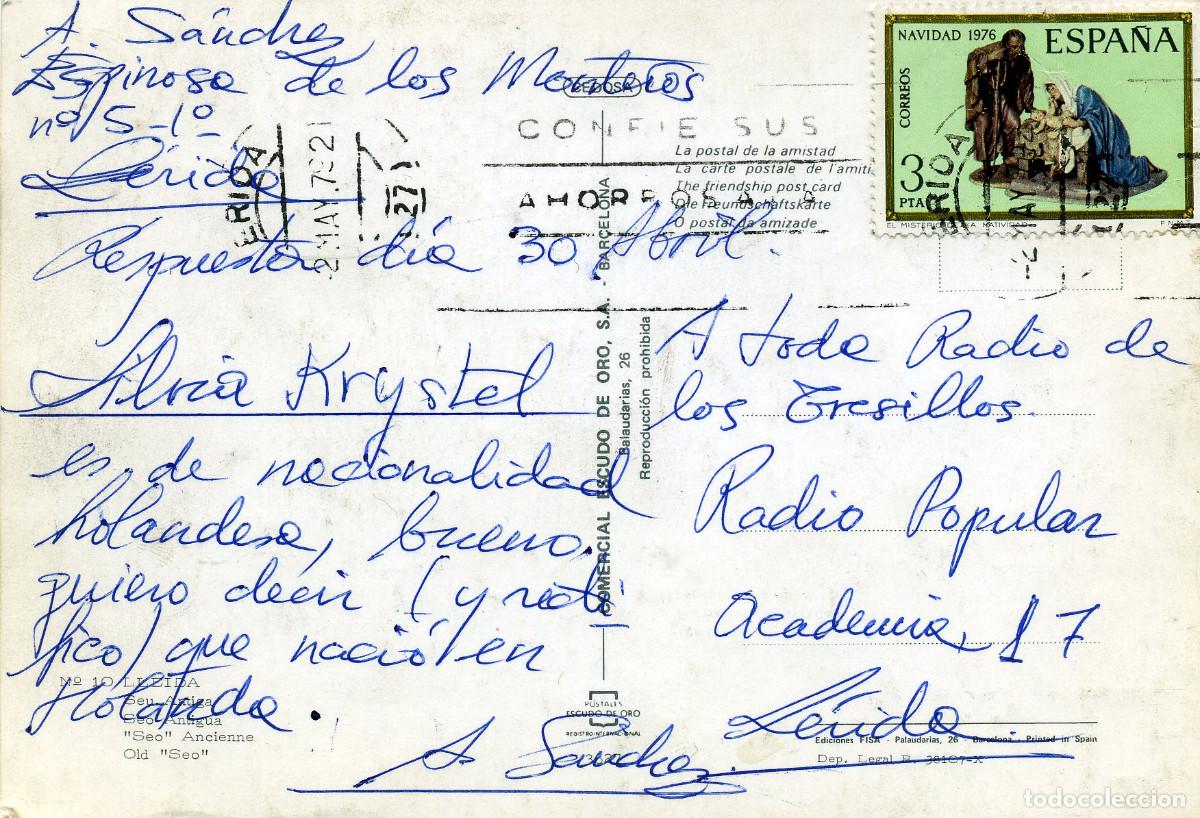 A. Sánchez
Espinosa de los Monteros
nº 5-1º
Lérida
Respuesta día 30 Abril.
Silvia Krystel
es de nacionalidad
holandesa, bueno,
quiero decir (y recti
fico) que nació en
Holanda.
A. Sánchez
Nº 10 LLEIDA
Seu Antiga
Seo Antigua
"Seo" Ancienne
Old "Seo"
CONFIE SUS
AHORROS A LA
2 MAY.79 21
27
La postal de la amistad
La carte postale de l'amiti
The friendship post card
Die Freundschaftskarte
O postal da amizade
COMERCIAL ESCUDO DE ORO, S.A. - BARCELONA
Balaudarias, 26
Reproducción prohibida
POSTALES
ESCUDO DE ORO
REGISTRO INTERNACIONAL
NAVIDAD 1976 ESPAÑA
CORREOS
3
PTA
EL MISTERIO LA NATIVIDAD
F.N.M.T.
A toda Radio de
los Tresillos.
Radio Popular
Academia, 17
Lérida.
Ediciones FISA - Palaudarias, 26 - Barcelona - Printed in Spain
Dep. Legal B. 38107-X
todocoleccion